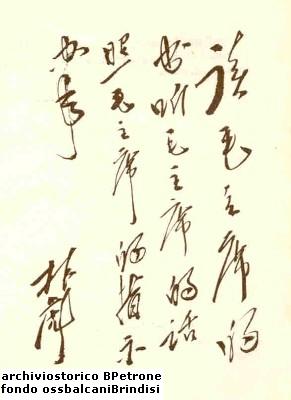 读毛主席的
书听毛主席的话
照毛主席的指示
办事
林彪
archiviostorico BPetrone
fondo ossbalcaniBrindisi